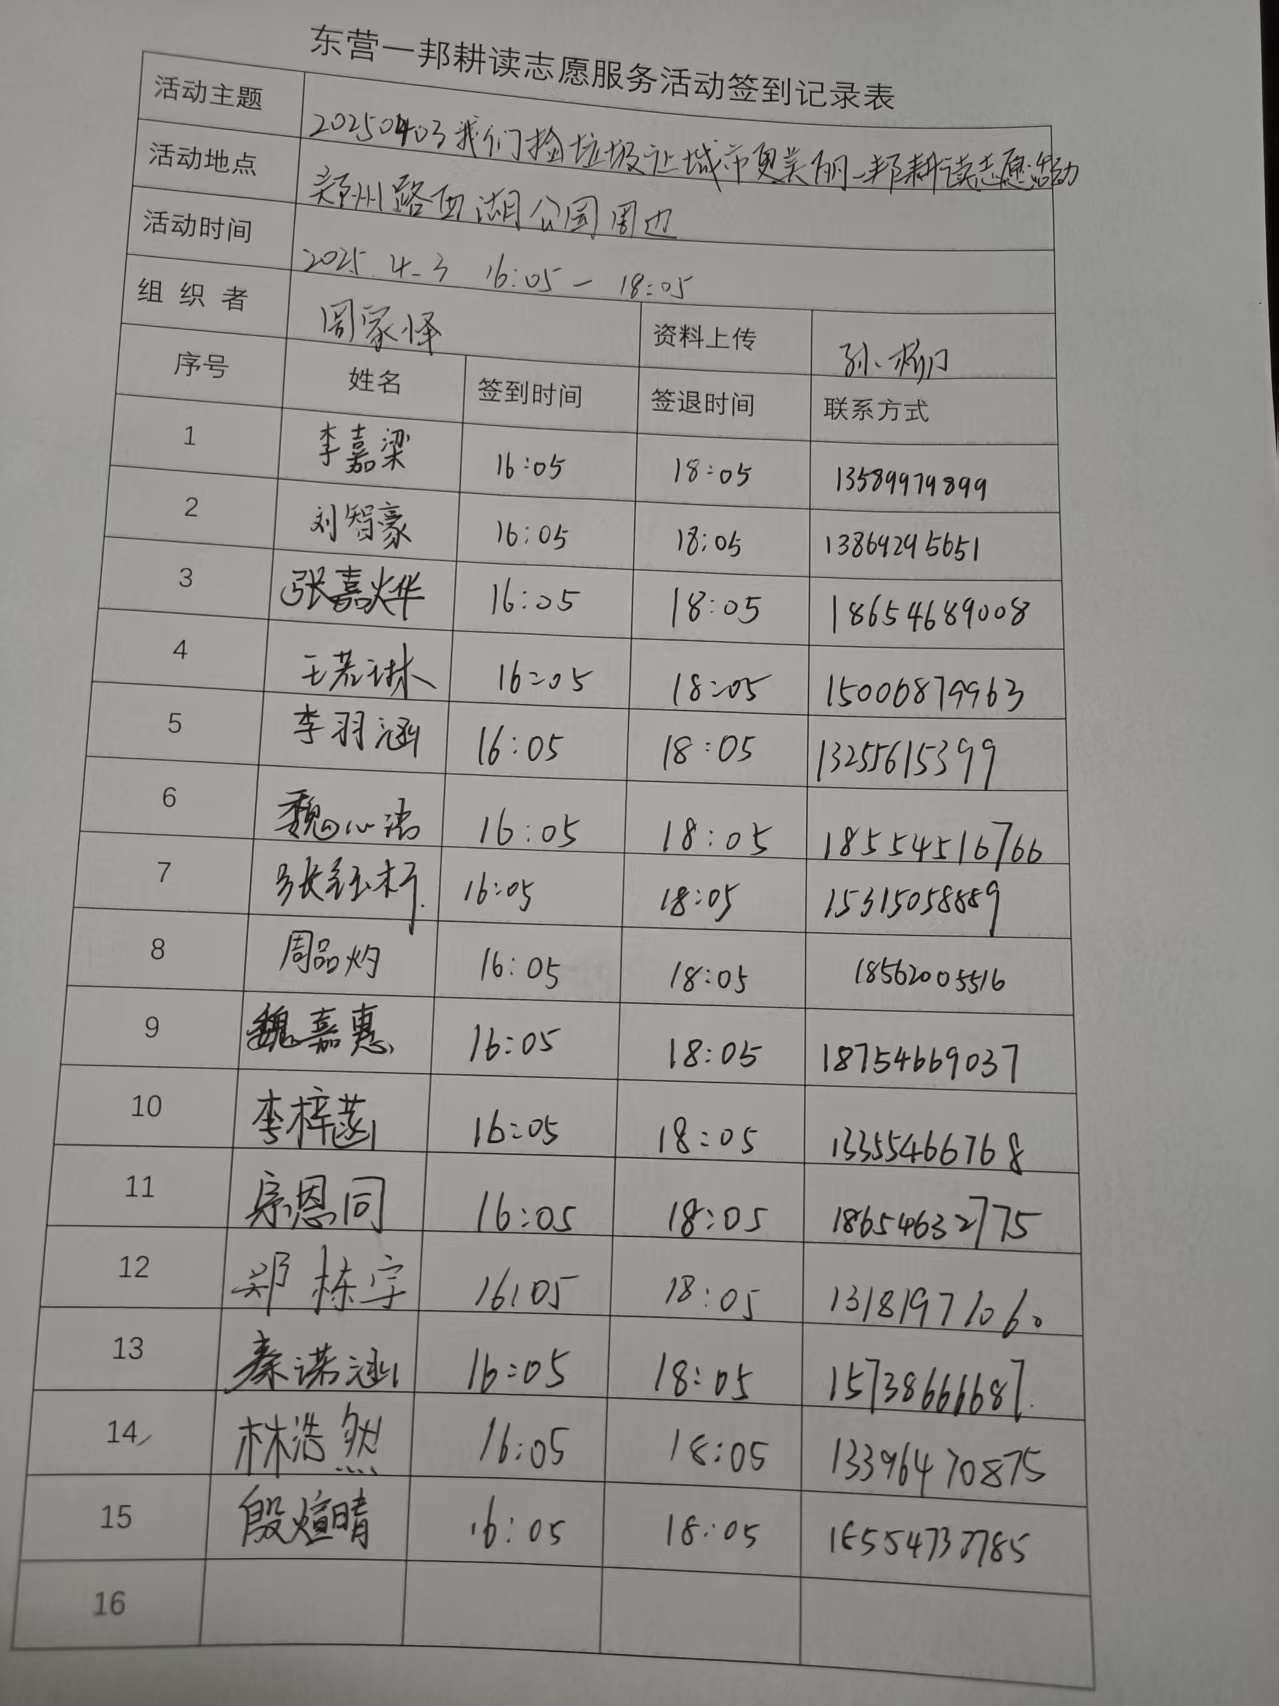 东营一邦耕读志愿服务活动签到记录表
活动主题 20250403我们捡垃圾让城市更美丽一邦耕读志愿活动
活动地点 郑州路西湖公园周边
活动时间 2025.4.3 16:05-18:05
组织者 周家怿 资料上传 孙
序号 姓名 签到时间 签退时间 联系方式
1 李嘉梁 16:05 18:05 13589979899
2 刘智豪 16:05 18:05 13869295651
3 张嘉烨 16:05 18:05 18654689008
4 王若琳 16:05 18:05 15006879963
5 李羽涵 16:05 18:05 13255615399
6 魏心 16:05 18:05 18554516766
7 张钰柠 16:05 18:05 15315058889
8 周品灼 16:05 18:05 18562005516
9 魏嘉惠 16:05 18:05 18754669037
10 李梓菡 16:05 18:05 13355466768
11 宗恩同 16:05 18:05 18654632775
12 郑栋宇 16:05 18:05 13181971060
13 秦诺涵 16:05 18:05 15738666687
14 林浩然 16:05 18:05 13396470875
15 殷煊晴 16:05 18:05
16